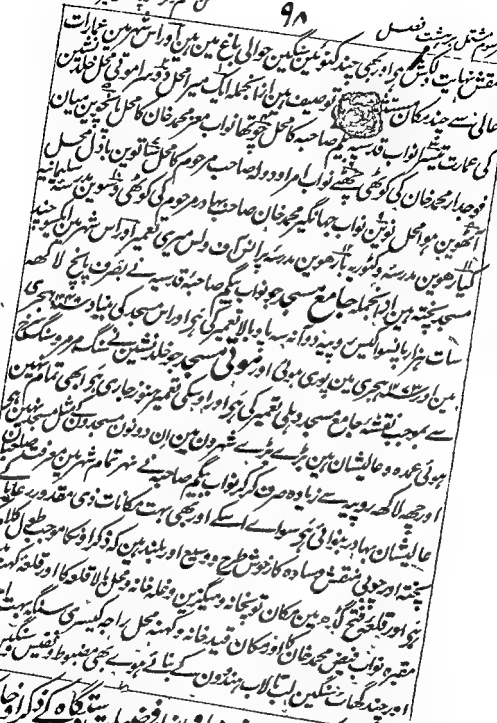 ۹۸
منقش نہایت دلکش ہے اور بھی چند کنوئیں سنگین حوالی باغ میں ہین اور اس شہر مین عمارات
عالی سے چند مکان مستحق توصیف ہین ازانجملہ ایک میرا محل دوسرا موتی محل خلد نشین
کی عمارت تیسرے نواب قدسیہ بیگم صاحبہ کا محل چوتھا نواب معز محمد خان کا محل پانچوین میان
فوجدار محمد خان کی کوٹھی چھٹے نواب امراو دولہ صاحب مرحوم کا محل ساتوین باڈل محل
آٹھوین ہوا محل نوین نواب جہانگیر محمد خان صاحب بہادر مرحوم کی کوٹھی دسوین مدرسہ سلیمانیہ
گیارھوین مدرسہ وکٹوریہ بارھوین مدرسہ پرانس آف ولس میری تعمیر اور اس شہر مین اگرچہ چند
مسجد پختہ ہین ازانجملہ جامع مسجد جو نواب بیگم صاحبہ قدسیہ نے بصرف پانچ لاکھ
سات ہزار پانسو اکیس روپیہ دو آنہ سہ پاو بالا تعمیر کی ہے اور اس مسجد کی بنیاد ہجری
مین اور ہجری مین پوری ہوئی اور موتی مسجد جو خلد نشین نے سنگ مرمر و سنگ سرخ
سے بموجب نقشہ جامع مسجد دہلی تعمیر کی ہے اور اوسکی تعمیر ہنوز جاری ہے ابھی تمام نہین
ہوئی عمدہ و عالیشان ہین بڑے بڑے شہرون مین ان دونون مسجدون کے مثل مسجد نہین ہے
اور چھہ لاکھ روپیہ سے زیادہ صرف کر کر نواب بیگم صاحبہ نے نہر تمام شہر مین
عالیشان بہا در بنوائی ہے سواے اسکے اور بھی بہت مکانات ذی مقدور رعایا
پختہ اور چوبی منقش و سادہ کار خوش طرح و وسیع اور بلند ہین کہ ذکر اوسکا موجب طول کلام
ہے اور قلعہ فتح گڑھ مین مکان توپخانہ و میگزین و غلہ خانہ و محل بالا قلعہ کا اور قلعہ کہنہ
مقبرہ نواب فیض محمد خان کا اور مکان قید خانہ و کہنہ محل راجہ کیسری سنگہ
اور چند گھاٹ سنگین لب تالاب ہندون کے بنائے ہوے بھی مضبوط و نفیس و سنگین